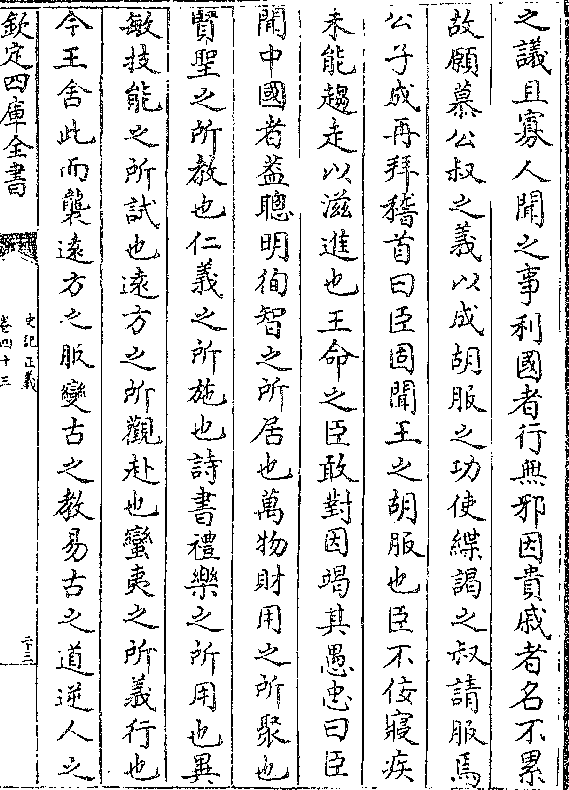 之議且寡人聞之事利國者行無邪因貴戚者名不累
故願慕公叔之義以成胡服之功使緤謁之叔請服焉
公子成再拜稽首曰臣固聞王之胡服也臣不佞寢疾
未能趨走以滋進也王命之臣敢對因竭其愚忠曰臣
聞中國者葢聰明徇智之所居也萬物財用之所聚也
賢聖之所教也仁義之所施也詩書禮樂之所用也異
敏技能之所試也逺方之所觀赴也蠻夷之所義行也
今王舍此而襲逺方之服變古之教易古之道逆人之
欽定四庫全書
史記正義
卷四十三
二十三